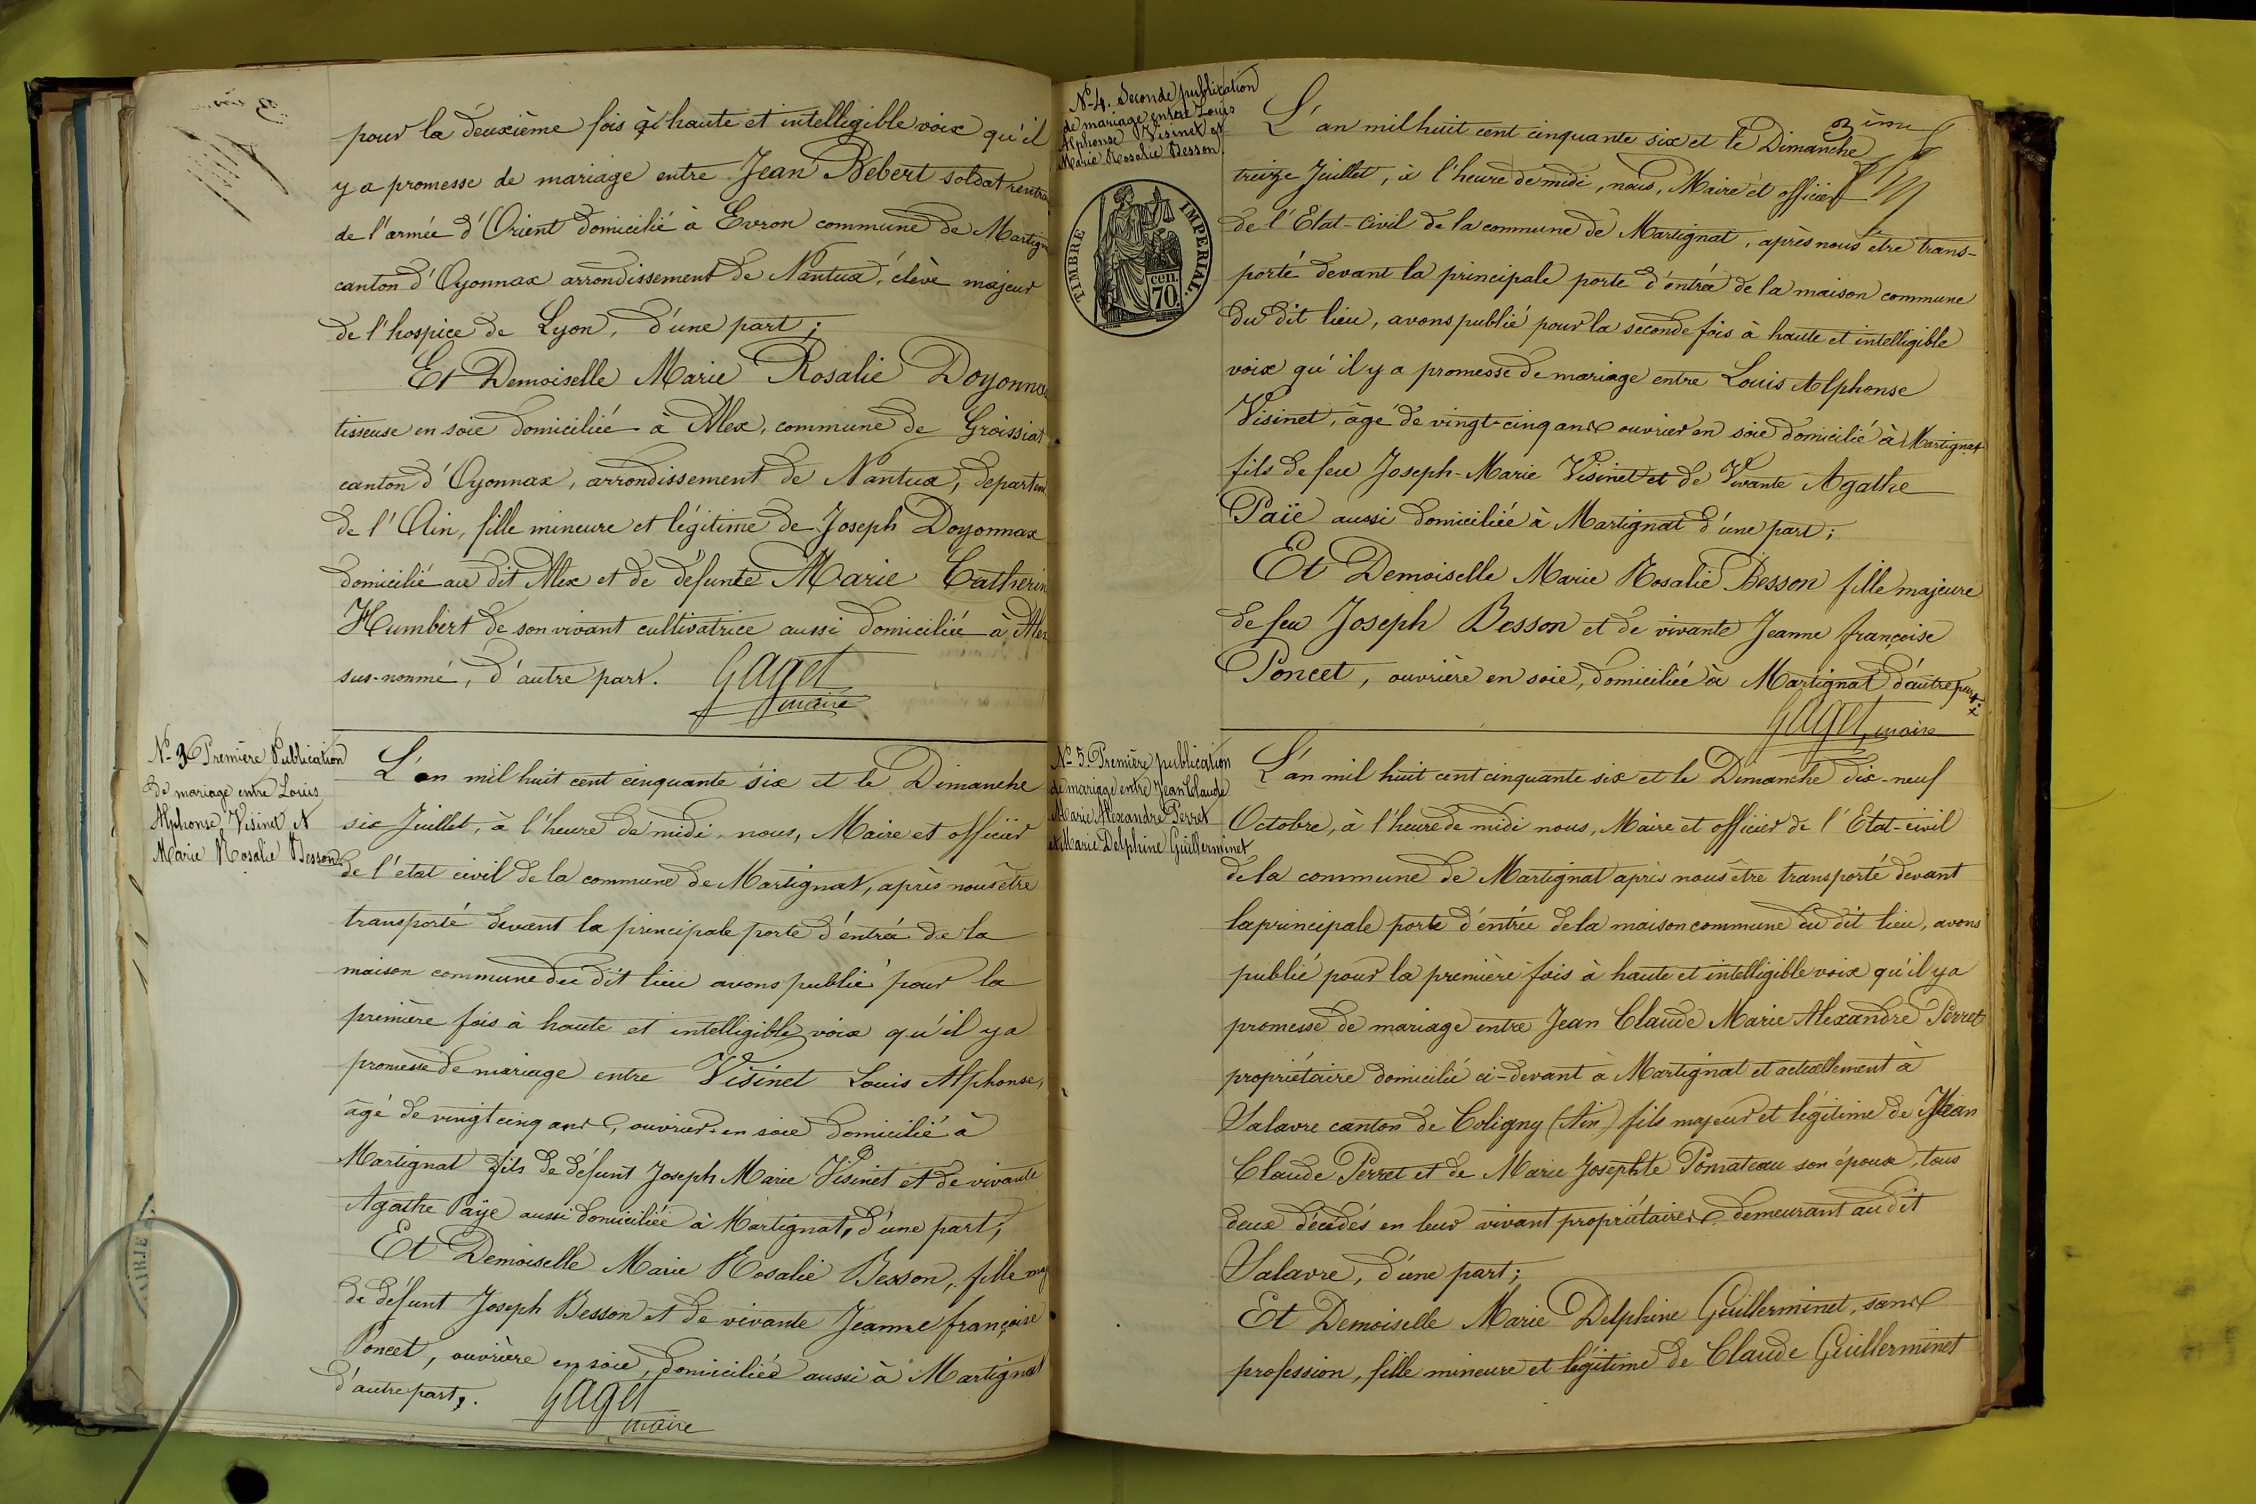 pour la deuxième fois à haute et intelligible voix qu'il
y a promesse de mariage entre Jean Bebert soldat rentra
de l'armée d'Orient domicilié à Evron commune de Martign
canton d'Oyonnax arrondissement de Nantua, élève majeur
de l'hospice de Lyon, d'une part;
Et Demoiselle Marie Rosalie Doyonna
tisseuse en soie domiciliée à Alex, commune de Groissiat
canton d'Oyonnax, arrondissement de Nantua, départem
de l'Ain, fille mineure et légitime de Joseph Doyonnax
domicilié au dit Alex et de défunte Marie Catherin
Humbert de son vivant cultivatrice aussi domiciliée à Alex
sus-nommé, d'autre part.
Gaget
maire
N° 3 Première Publication
de mariage entre Louis
Alphonse Visinet et
Marie Rosalie Besson
L'an mil huit cent cinquante six et le Dimanche
six Juillet, à l'heure de midi, nous, Maire et officier
de l'état civil de la commune de Martignat, après nous être
transporté devant la principale porte d'entrée de la
maison commune du dit lieu avons publié pour la
première fois à haute et intelligible voix qu'il y a
promesse de mariage entre Visinet Louis Alphonse,
âgé de vingt cinq ans, ouvrier en soie domicilié à
Martignat fils de défunt Joseph Marie Visinet et de vivante
Agathe Paÿe aussi domiciliée à Martignat, d'une part;
Et Demoiselle Marie Rosalie Besson, fille maj
de défunt Joseph Besson et de vivante Jeanne françoise
Poncet, ouvrière en soie, domiciliée aussi à Martignat
d'autre part.
Gaget
maire
MAIRIE
N° 4. Seconde publication
de mariage entre Louis
Alphonse Visinet et
Marie Rosalie Besson.
TIMBRE IMPERIAL
70 cen.
3ème
L'an mil huit cent cinquante six et le Dimanche
treize Juillet, à l'heure de midi, nous, Maire et officier
de l'Etat-Civil de la commune de Martignat, après nous être trans-
porté devant la principale porte d'entrée de la maison commune
du dit lieu, avons publié pour la seconde fois à haute et intelligible
voix qu'il y a promesse de mariage entre Louis Alphonse
Visinet, âgé de vingt-cinq ans ouvrier en soie domicilié à Martignat
fils de feu Joseph-Marie Visinet et de Vivante Agathe
Païe aussi domiciliée à Martignat d'une part;
Et Demoiselle Marie Rosalie Besson fille majeure
de feu Joseph Besson et de vivante Jeanne françoise
Poncet, ouvrière en soie, domiciliée à Martignat d'autre part.
Gaget, maire
N° 5. Première publication
de mariage entre Jean Claude
Marie Alexandre Perret
et Marie Delphine Guillerminet
L'an mil huit cent cinquante six et le Dimanche dix-neuf
Octobre, à l'heure de midi nous, Maire et officier de l'Etat-civil
de la commune de Martignat après nous être transporté devant
la principale porte d'entrée de la maison commune du dit lieu, avons
publié pour la première fois à haute et intelligible voix qu'il y a
promesse de mariage entre Jean Claude Marie Alexandre Perret
propriétaire domicilié ci-devant à Martignat et actuellement à
Salavre canton de Coligny (Ain) fils majeur et légitime de Jean
Claude Perret et de Marie Josephte Pomateau son épouse, tous
deux décédés en leur vivant propriétaires demeurant au dit
Salavre, d'une part;
Et Demoiselle Marie Delphine Guillerminet, sans
profession, fille mineure et légitime de Claude Guillerminet